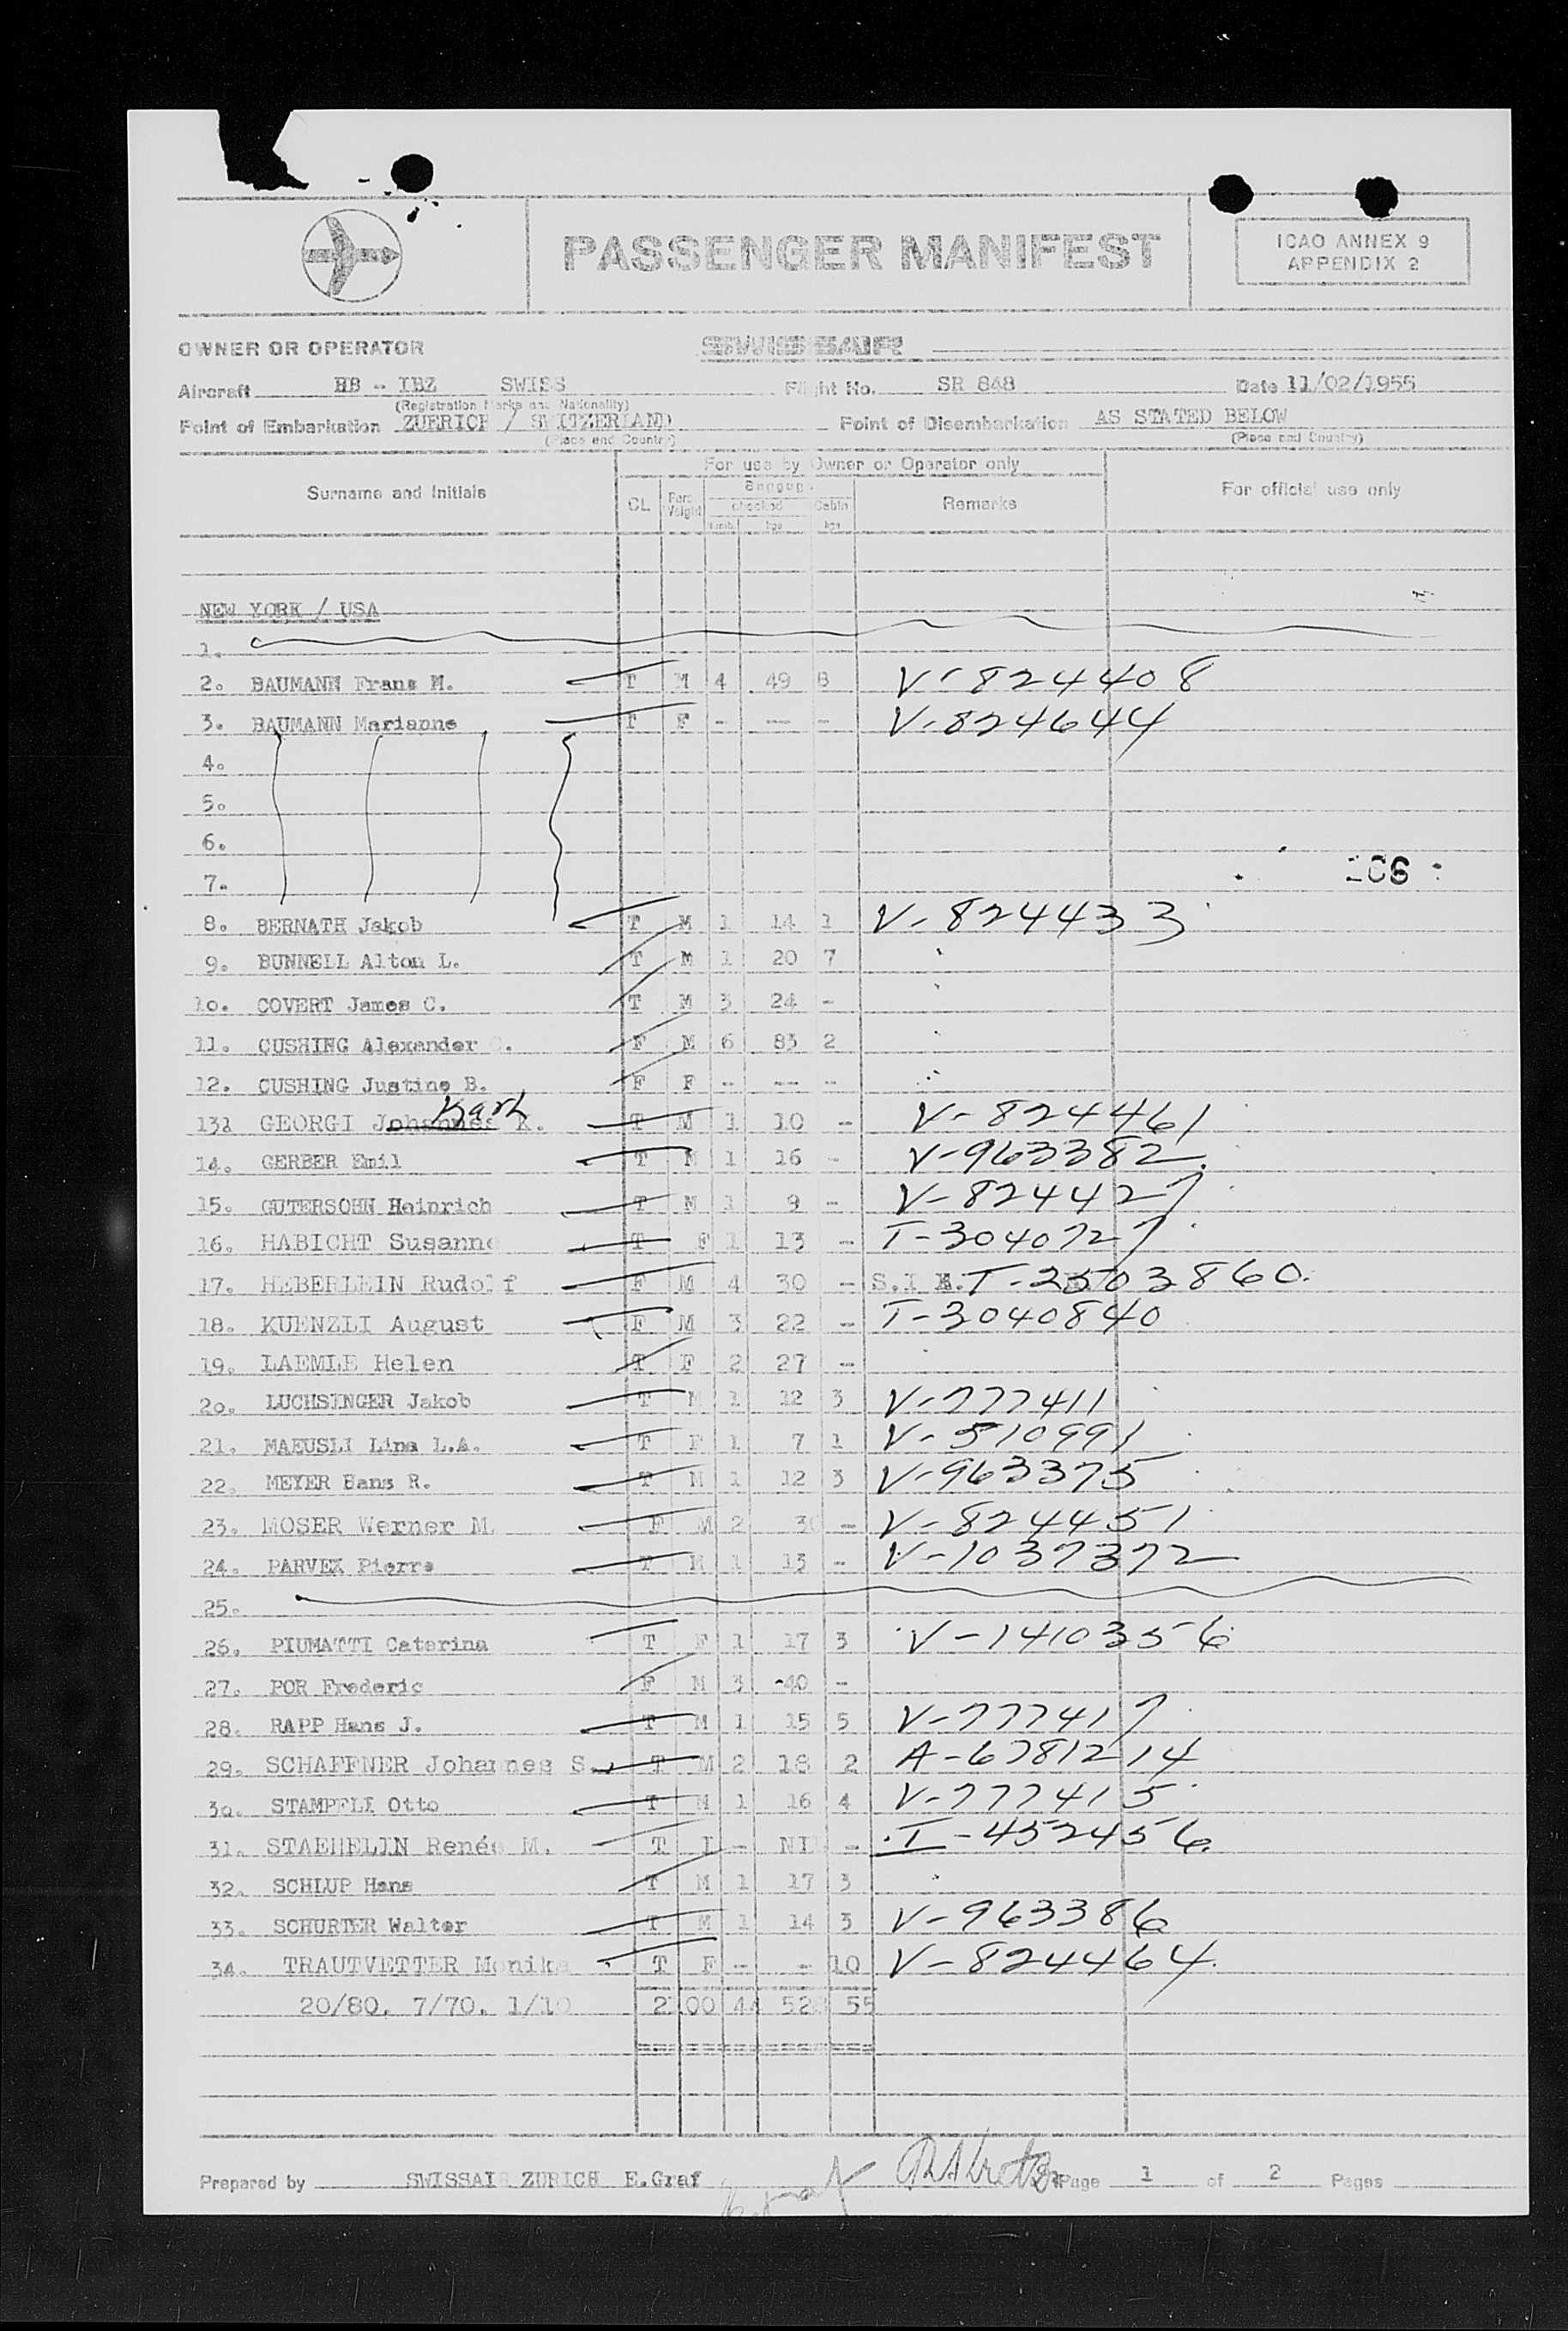 PASSENGER MANIFEST
ICAO ANNEX 9
APPENDIX 2
OWNER OR OPERATOR SWISSAIR
Aircraft HB - IBZ SWISS Flight No. SR 848 Date 11/02/1955
(Registration Marks and Nationality)
Point of Embarkation ZUERICH / SWITZERLAND Point of Disembarkation AS STATED BELOW
(Place and Country) (Place and Country)
For use by Owner or Operator only
Surname and Initials CL Pers. Weight Baggage checked Numb. kgs Cabin kgs Remarks For official use only
NEW YORK / USA
1.
2. BAUMANN Frans M. T M 4 49 8 V-824408
3. BAUMANN Marianne T F - -- - V-824644
4.
5.
6.
7.
8. BERNATH Jakob T M 1 14 1 V-824433
9. BUNNELL Alton L. T M 1 20 7
10. COVERT James C. T M 3 24 -
11. CUSHING Alexander C. F M 6 83 2
12. CUSHING Justine B. F F - -- -
Karl
131 GEORGI Johannes K. T M 1 10 - V-824461
14. GERBER Emil T M 1 16 - V-963382
15. GUTERSOHN Heinrich T M 1 9 - V-824427
16. HABICHT Susanne T F 1 13 - T-3040727
17. HEBERLEIN Rudolf F M 4 30 - S.I T-2503860.
18. KUENZLI August F M 3 22 - T-3040840
19. LAEMLE Helen T F 2 27 -
20. LUCHSINGER Jakob T M 1 12 3 V-777411
21. MAEUSLI Lina L.A. T F 1 7 1 V-510991
22. MEYER Hans R. T M 1 12 3 V-963375
23. MOSER Werner M. F M 2 30 - V-824451
24. PARVEX Pierre T M 1 13 - V-1037372
25.
26. PIUMATTI Caterina T F 1 17 3 V-1410356
27. POR Frederic F M 3 40 -
28. RAPP Hans J. T M 1 15 5 V-777417
29. SCHAFFNER Johannes S. T M 2 18 2 A-6781214
30. STAMPFLI Otto T M 1 16 4 V-777415
31. STAEHELIN Renée M. T I - NI - T-452456
32. SCHLUP Hans T M 1 17 3
33. SCHURTER Walter T M 1 14 3 V-963386
34. TRAUTVETTER Monika T F - - 10 V-824464
20/80. 7/70. 1/10 2 00 44 52 55
Prepared by SWISSAIR ZURICH E.Graf Page 1 of 2 Pages